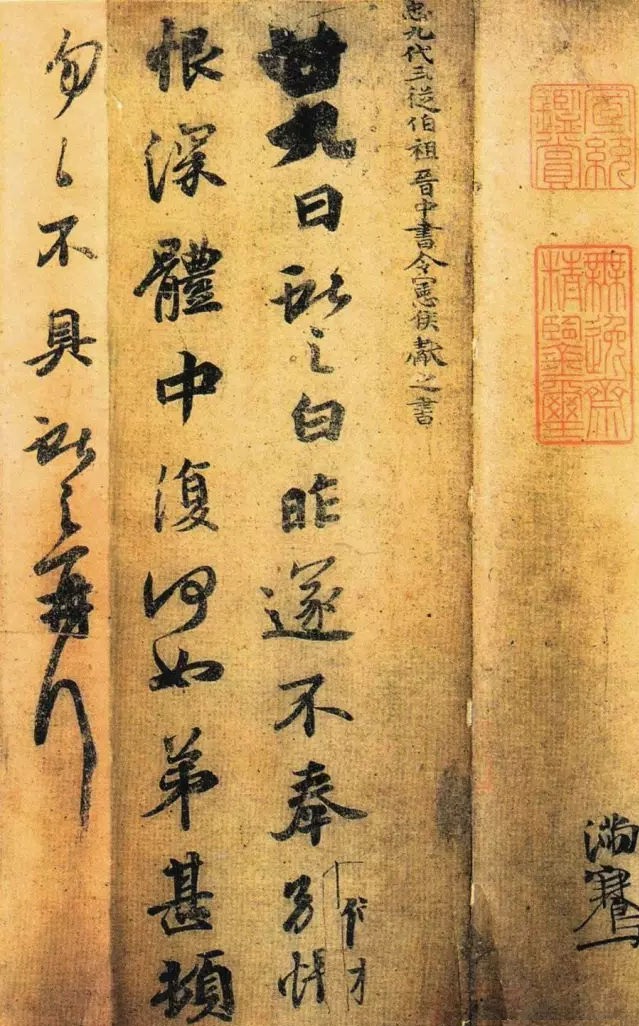 宣統
鑑賞
無逸齋
精鑒璽
滿騫
九代三從伯祖晉中書令憲侯獻之書
廿九日獻之白昨遂不奉別悵
恨深體中復何如弟甚頓
匆〻不具獻之再拜